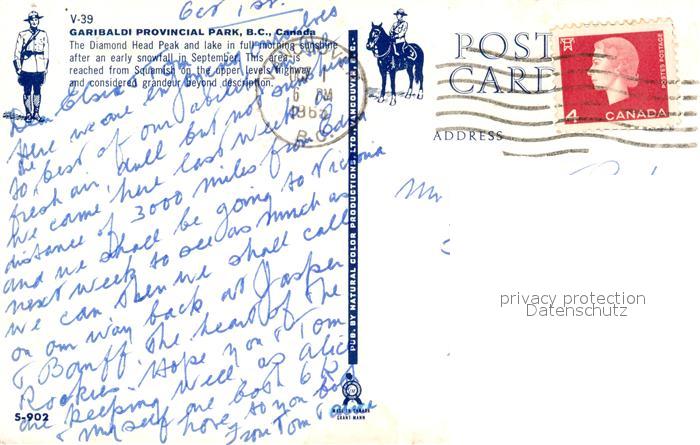 Oct 1st.
V-39
GARIBALDI PROVINCIAL PARK, B.C., Canada
The Diamond Head Peak and lake in full morning sunshine
after an early snowfall in September. This area is
reached from Squamish on the upper levels highway
and considered grandeur beyond description.
Elsie
Here we are enjoying ourselves
to the best of our ability not sunshine
fresh air, dull but not
We came here last week a
distance of 3000 miles from
and we shall be going to Victoria
next week to see as much as
we can then we shall call
on our way back at Jasper
& Banff the heart of the
Rockies. Hope you & Tom
are keeping well as Alice
& myself are both O.K.
love to you both
From Tom
S-902
PUB. BY NATURAL COLOR PRODUCTIONS LTD., VANCOUVER, B.C.
MADE IN CANADA
GRANT MANN
POST
CARD
ADDRESS
PM
196
B.C.
4
CANADA
POSTES POSTAGE
Mr
privacy protection
Datenschutz